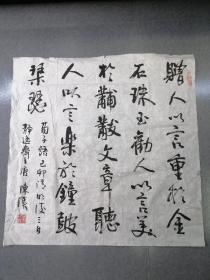 贈人以言重於金
石珠玉勸人以言美
於黼黻文章聽
人以言樂於鐘鼓
琴瑟
荀子語己卯清明後三日